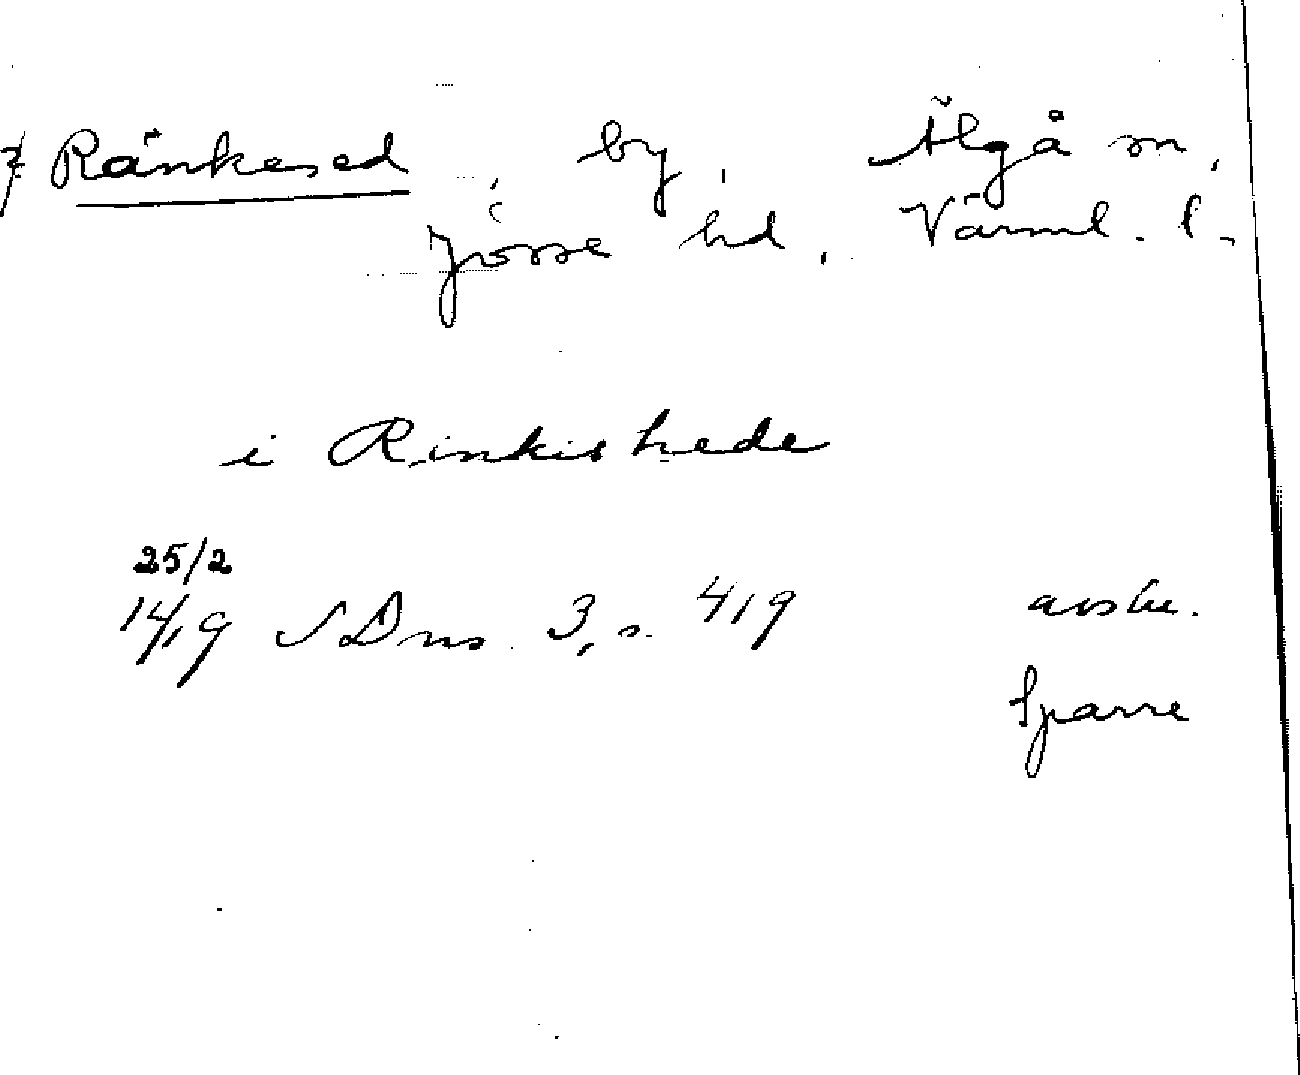 Ränkesed, by, Älgå sn,
Jösse hd, Värml. l.
i Rinkishede
25/2
1419 SDns 3, s. 419 avskr.
Sparre